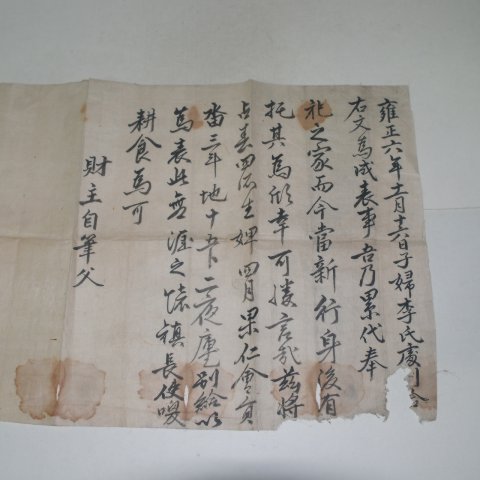 雍正六年十二月十六日子婦李氏處
右文爲成表事吾乃累代奉
祀之家而今當新行身後有
托其爲欣幸可勝言哉茲將
占春田所生婢四月果仁會員
畓三斗地十五卜二夜庫別給以
爲表此無涯之懷旗長使喚
耕食爲可
財主自筆父